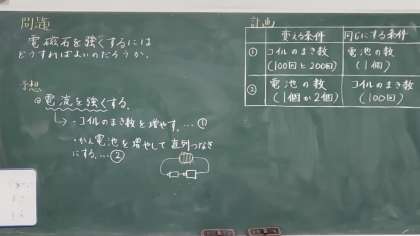 問題
電磁石を強くするには
どうすればよいのだろうか。
予想
電流を強くする。
・コイルのまき数を増やす。…①
・かん電池を増やして直列つなぎ
にする。…②
計画
変える条件 同じにする条件
① コイルのまき数 電池の数
(100回と200回) (1個)
② 電池の数 コイルのまき数
(1個か2個) (100回)